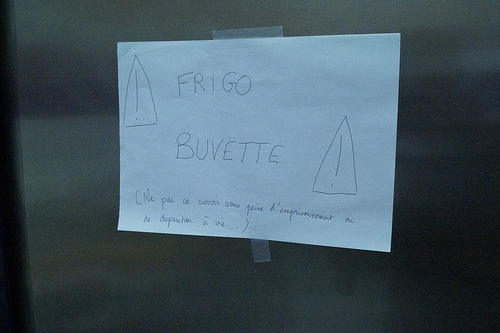 FRIGO
BUVETTE
(Ne pas se servir sous peine d'emprisonnement ou
de disparition à vie...)